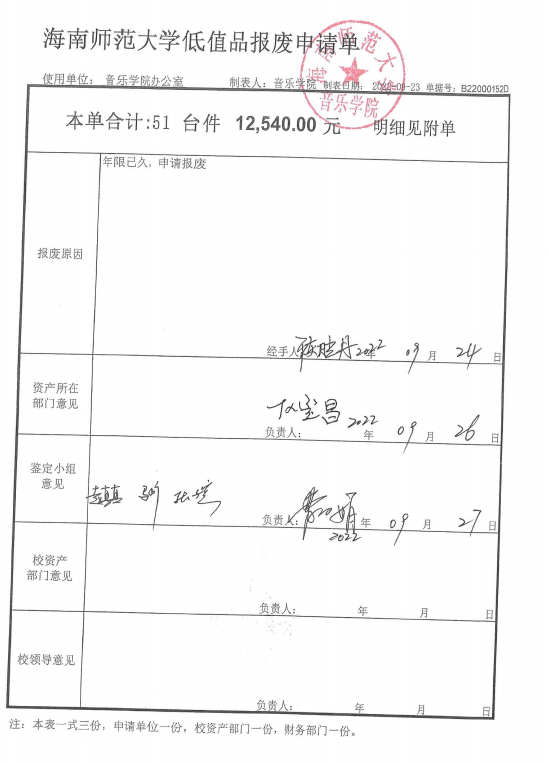 海南师范大学低值品报废申请单
海南师范大学
音乐学院
使用单位: 音乐学院办公室 制表人: 音乐学院 制表日期: 2022-09-23 单据号: B22000152D
本单合计:51 台件 12,540.00 元 明细见附单
年限已久,申请报废
报废原因
经手人 2022 年 09 月 24 日
资产所在
部门意见
负责人: 2022 年 09 月 26 日
鉴定小组
意见
负责人: 2022 年 09 月 27 日
校资产
部门意见
负责人: 年 月 日
校领导意见
负责人: 年 月 日
注: 本表一式三份,申请单位一份,校资产部门一份,财务部门一份。